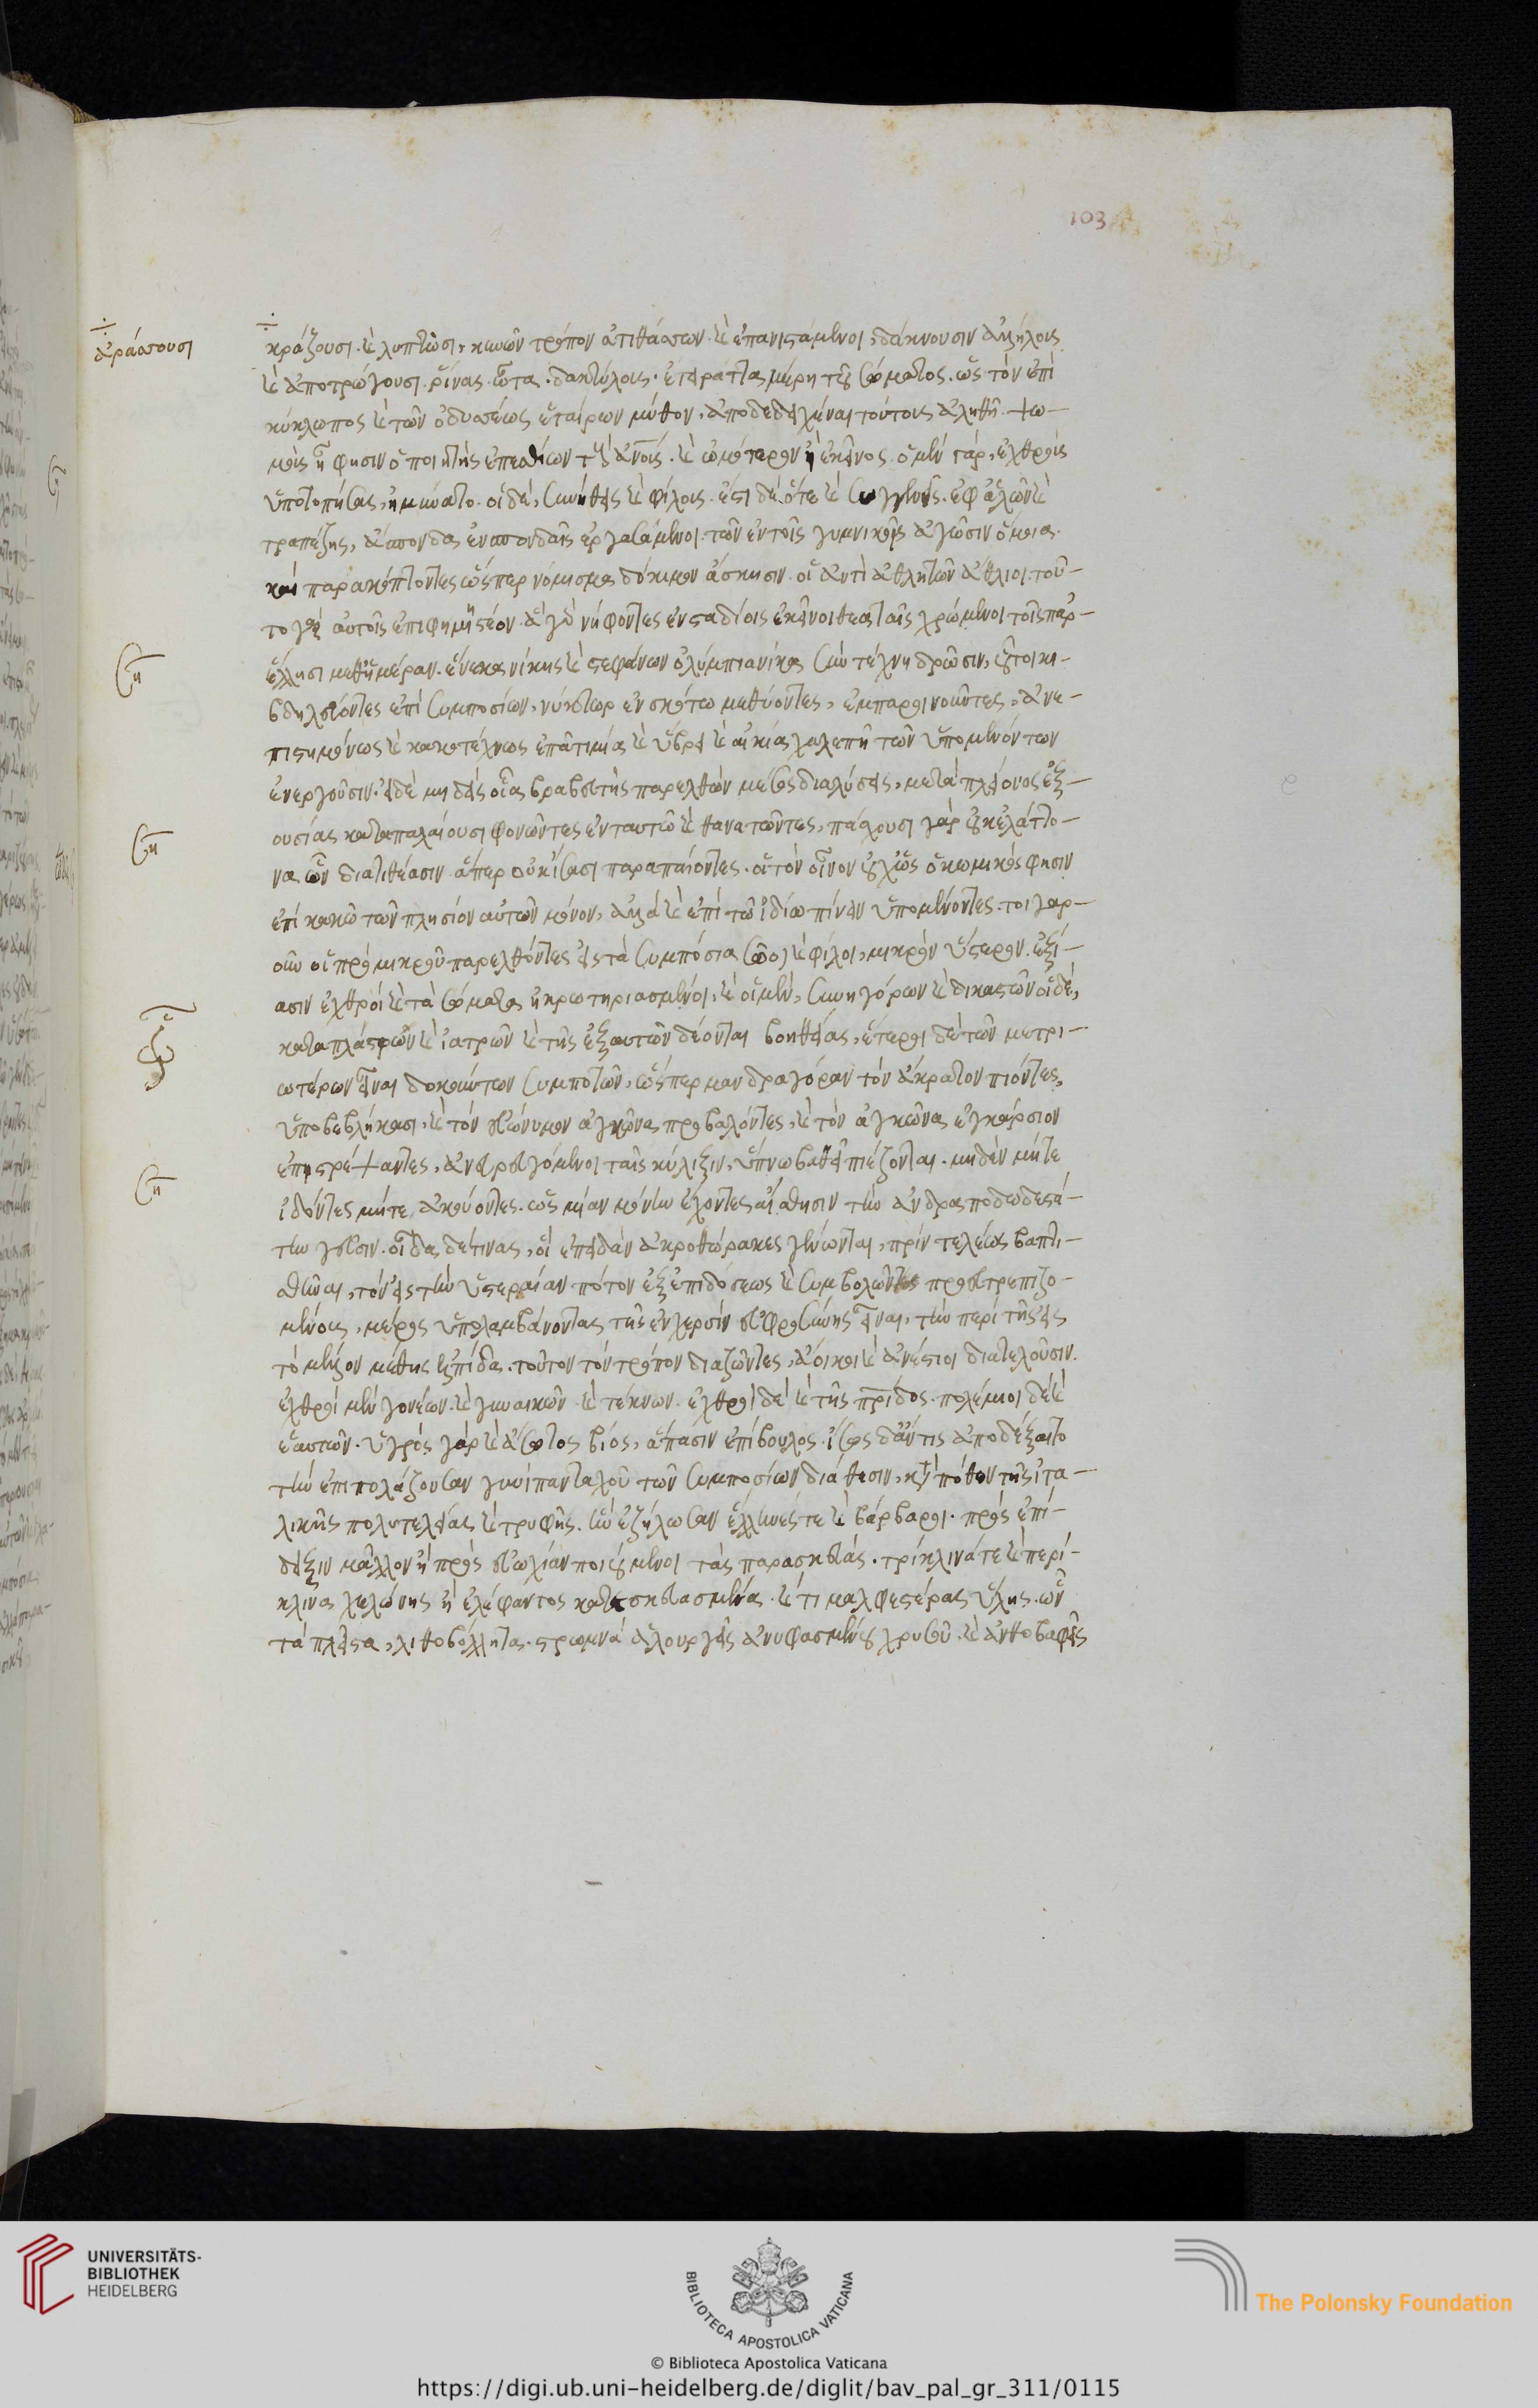 103
÷ ἀράσσουσι
÷ κράζουσι. καὶ λυττῶσι, κυνῶν τρόπον ἀτιθάσσων. καὶ ἐπανιστάμενοι, δάκνουσιν ἀλλήλους
καὶ ἀποτρώγουσι. ῥίνας. ὦτα. δακτύλους. ἕτερα ττα μέρη τοῦ σώματος. ὡς τὸν ἐπὶ
κύκλωπος καὶ τῶν ὀδυσσέως ἑταίρων μύθον, ἀποδεδειχέναι τούτους ἀληθῆ. ψω-
μοὺς ἧ φησιν ὁ ποιητὴς ἐπεσθίων τοὺς ἀνοις. καὶ ὠμότερον ἢ ἐκεῖνος. ὁ μὲν γὰρ, ἐχθροὺς
ὑποτοπήσας, ἠμύνατο. οἱ δὲ, συνήθεις καὶ φίλους. ἔστι δὲ ὅτε καὶ συγγενεῖς. ἐφ ἁλῶν καὶ
τραπέζης, ἄσπονδα ἐν σπονδαῖς ἐργασάμενοι. τῶν ἐν τοῖς γυμνικοῖς ἀγῶσιν ὅμοια.
καὶ παρακόπτοντες ὥσπερ νόμισμα δόκιμον ἄσκησιν. οἱ ἀντὶ ἀθλητῶν ἄθλιοι. τοῦ-
το γὰρ αὐτοῖς ἐπιφημιστέον. ἃ γὰρ νήφοντες ἐν σταδίοις ἐκεῖνοι θεαταῖς χρώμενοι τοῖς παρ-
έλλησι μεθημέραν. ἕνεκα νίκης καὶ στεφάνων ὀλύμπιανίκα σὺν τέχνη δρῶσιν, οὗτοι κι-
βδηλεύοντες ἐπὶ συμποσίων, νύκτωρ ἐν σκότω μεθύοντες, ἐμπαροινοῦντες, ἀνε-
πιστημόνως καὶ κακοτέχνως ἐπατιμία καὶ ὕβρει καὶ αἰκία χαλεπῆ τῶν ὑπομενόντων
ἐνεργοῦσιν. εἰ δὲ μηδεὶς οἷα βραβευτὴς παρελθὼν μέσος διαλύσει, μετὰ πλείονος ἐξ-
ουσίας καταπαλαίουσι φονῶντες ἐνταυτῶ καὶ θανατῶντες, πάσχουσι γὰρ οὐκ ἐλάττο-
να ὧν διατιθέασιν ἅπερ οὐκ ἴσασι παραπαίοντες. οἱ τὸν οἶνον οὐχ ὡς ὁ κωμικός φησιν
ἐπὶ κακῶ τῶν πλησίον αὐτῶν μόνον, ἀλλὰ καὶ ἐπὶ τῶ ἰδίω πίνειν ὑπομένοντες. τοιγαρ-
οῦν οἱ πρὸ μικροῦ παρελθόντες εἰς τὰ συμπόσια σῶοι καὶ φίλοι, μικρὸν ὕστερον. ἐξί-
ασιν ἐχθροὶ καὶ τὰ σώματα ἠκρωτηριασμένοι. καὶ οἱ μὲν, συνηγόρων καὶ δικαστῶν οἱ δὲ,
καταπλάστων καὶ ἰατρῶν καὶ τῆς ἐξ αὐτῶν δέονται βοηθείας, ἕτεροι δὲ τῶν μετρι-
ωτέρων εἶναι δοκούντων συμποτῶν, ὥσπερ μανδραγόραν τὸν ἄκρατον πιόντες,
ὑποβεβλήκασι, καὶ τὸν εὐώνυμον ἀγκῶνα προβαλόντες, καὶ τὸν ἀγκῶνα ἐγκάρσιον
ἐπιστρέψαντες, ἀνερευγόμενοι ταῖς κύλιξιν, ὕπνω βαθεῖ πιέζονται. μηδὲν μήτε
ἰδόντες μήτε ἀκούοντες. ὡς μίαν μόνην ἔχοντες αἴσθησιν τὴν ἀνδραποδωδεστά-
την γεῦσιν. οἶδα δέ τινας, οἳ ἐπειδὰν ἀκροθώρακες γένωνται, πρὶν τελείως βαπτι-
σθῆναι, τὸν εἰς τὴν ὑστεραίαν πότον ἐξ ἐπιδόσεως καὶ συμβολῶν προευτρεπιζο-
μένους, μέρος ὑπολαμβάνοντας τῆς ἐν χερσὶν εὐφροσύνης εἶναι, τὴν περὶ τῆς εἰς
τὸ μέλλον μέθης ἐλπίδα. τοῦτον τὸν τρόπον διαζῶντες, ἄοικοι καὶ ἀνέστιοι διατελοῦσιν.
ἐχθροὶ μὲν γονέων. καὶ γυναικῶν. καὶ τέκνων. ἐχθροὶ δὲ καὶ τῆς πρίδος. πολέμιοι δὲ καὶ
ἑαυτῶν. ὑγρὸς γὰρ καὶ ἄσωτος βίος, ἅπασιν ἐπίβουλος. ἴσως δἄν τις ἀποδέξαιτο
τὴν ἐπιπολάζουσαν νυνὶ πανταχοῦ τῶν συμποσίων διάθεσιν, κατὰ πόθον τῆς ἰτα-
λικῆς πολυτελείας καὶ τρυφῆς. ἣν ἐζήλωσαν ἕλληνές τε καὶ βάρβαροι. πρὸς ἐπί-
δειξιν μᾶλλον ἢ πρὸς εὐωχίαν ποιούμενοι τὰς παρασκευάς. τρίκλινά τε καὶ περί-
κλινα χελώνης ἢ ἐλέφαντος κατεσκευασμένα. καί τι μαλφεστέρας ὕλης. ὧν
τὰ πλεῖστα, λιθοκόλλητα. στρωμνὰ ἁλουργεῖς ἀνυφασμένου χρυσοῦ. καὶ ἀνθοβαφεῖς
UNIVERSITÄTS-
BIBLIOTHEK
HEIDELBERG
BIBLIOTECA APOSTOLICA VATICANA
The Polonsky Foundation
© Biblioteca Apostolica Vaticana
https://digi.ub.uni-heidelberg.de/diglit/bav_pal_gr_311/0115